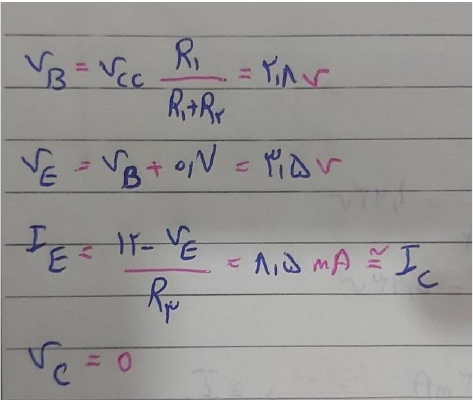 V_B = V_CC R_1 / (R_1 + R_۲) = ۲,۸ V
V_E = V_B + ۰,۷ = ۳,۵ V
I_E = (۱۲ - V_E) / R_۳ = ۸,۵ mA ≅ I_C
V_C = 0